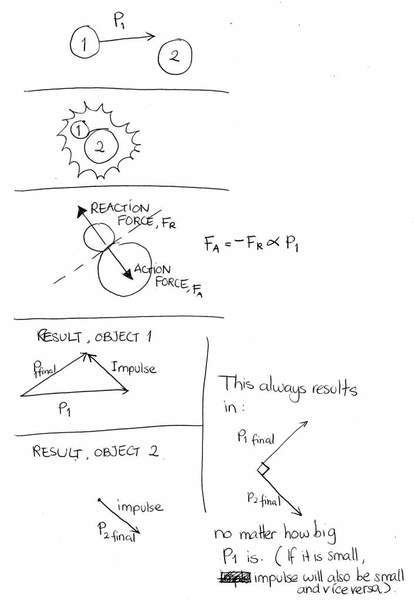 P1
1
2
1
2
REACTION
FORCE, FR
ACTION
FORCE, FA
FA = -FR ∝ P1
RESULT, OBJECT 1
Pfinal
Impulse
P1
RESULT, OBJECT 2
impulse
P2final
This always results
in:
P1 final
P2 final
no matter how big
P1 is. (If it is small,
impulse will also be small
and viceversa).